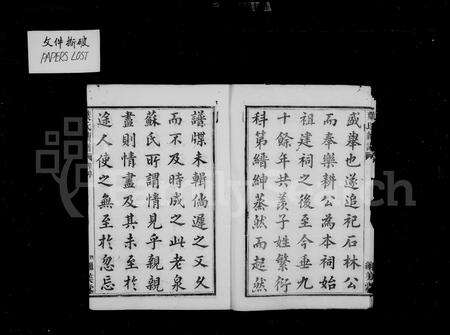 文件撕破
PAPERS LOST
盛舉也遂追祀石林公
而奉樂耕公為本祠始
祖建祠之後至今垂九
十餘年共羨子姓繁衍
科第縉紳蒸然而起然
譜牒未輯倘遲之又久
而不及時成之此老泉
蘇氏所謂情見乎親親
盡則情盡及其未至於
途人使之無至於忽忘